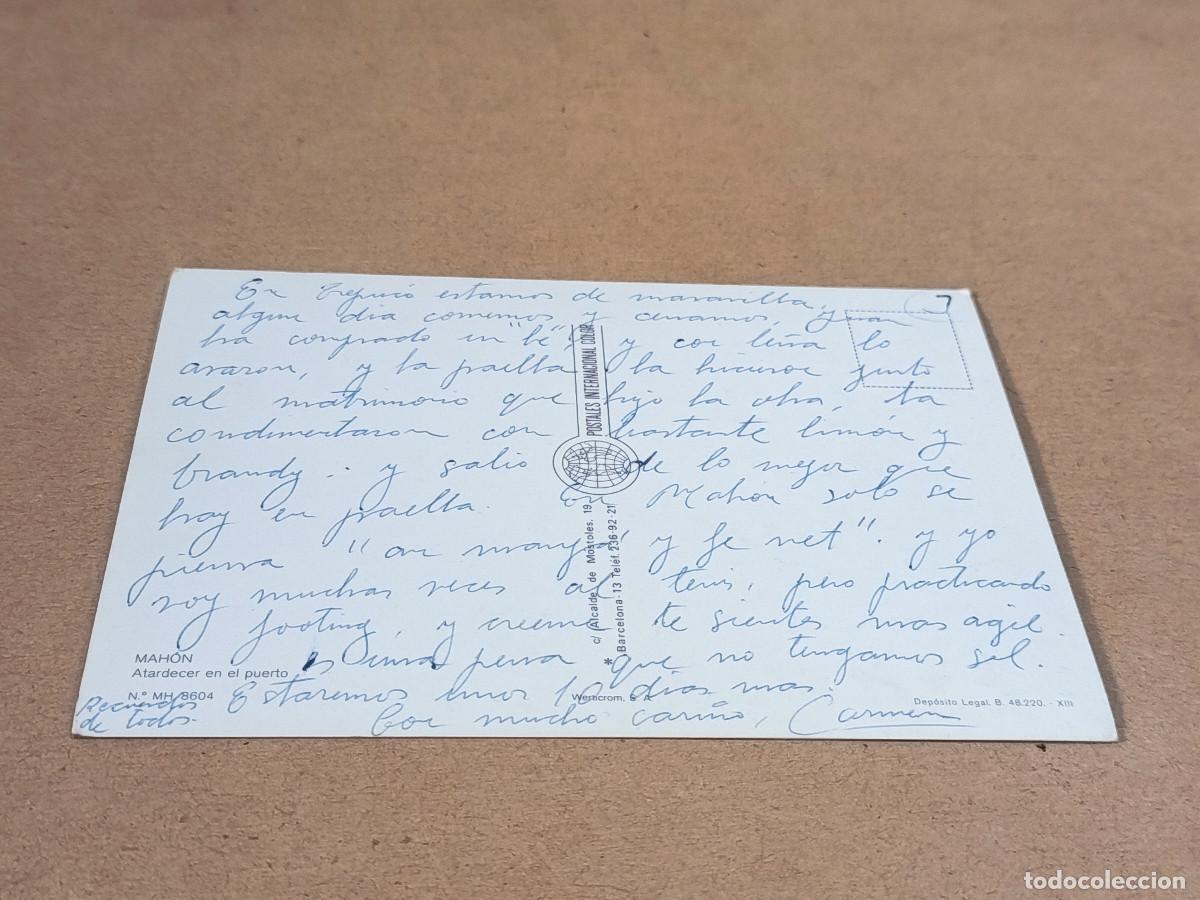 En Trepucó estamos de maravilla,
algun dia comemos y cenamos, y
ha comprado un "be" y con leña lo
asaron, y la paella la hicieron junto
al matrimonio que hizo la otra, la
condimentaron con bastante limón y
brandy. y salio de lo mejor que
hay en paella. En Mahón solo se
piensa "on manga y fe net". y yo
voy muchas veces al tenis, pero practicando
footing, y creeme te sientes mas agil.
es una pena que no tengamos sol.
Estaremos unos 10 dias mas.
Con mucho cariño, Carmen
Recuerdos
de todos.
MAHÓN
Atardecer en el puerto
N.º MH/8604
POSTALES INTERNACIONAL COLOR
c/ Alcalde de Mostoles, 19
* Barcelona-13 Teléf. 236-92-21
Werticrom, S. A.
Depósito Legal, B. 48.220. - XIII
todocoleccion